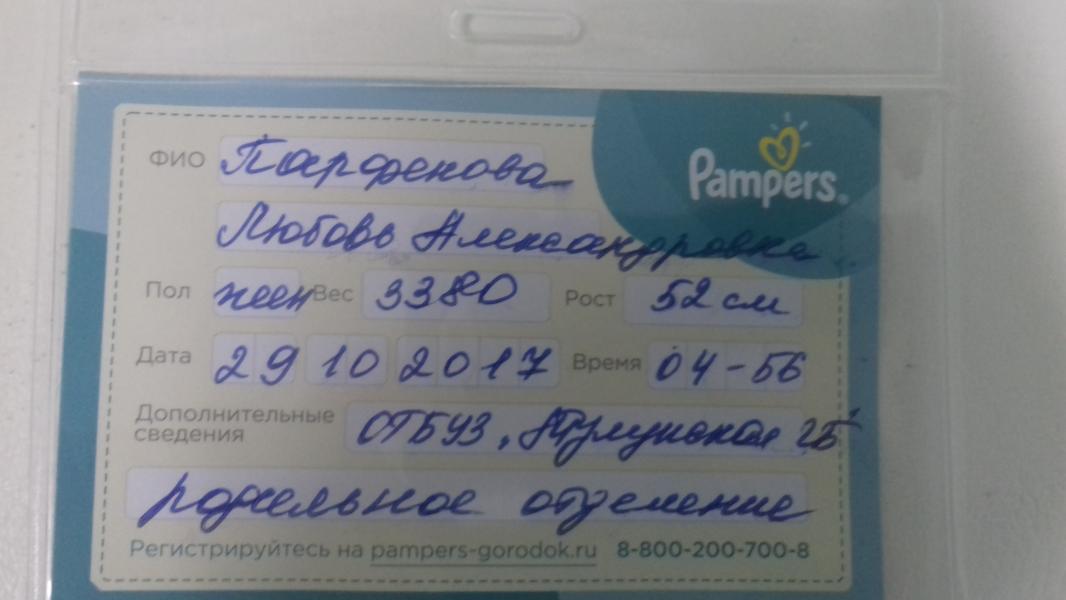 Pampers.
ФИО Парфенова
Любовь Александровна
Пол жен Вес 3380 Рост 52 см
Дата 29 10 2017 Время 04-56
Дополнительные
сведения ОГБУЗ "Тулунская ГБ"
родильное отделение
Регистрируйтесь на pampers-gorodok.ru 8-800-200-700-8